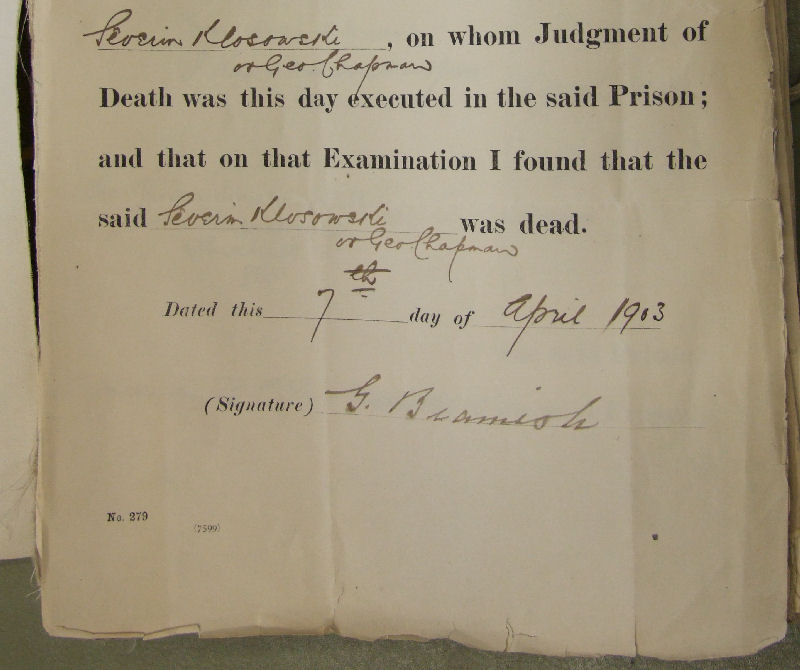 Severin Klosowski, on whom Judgment of
or Geo. Chapman
Death was this day executed in the said Prison;
and that on that Examination I found that the
said Severin Klosowski was dead.
or Geo Chapman
th
Dated this 7 day of April 1903
(Signature) G. Beamish
No. 279
(7599)